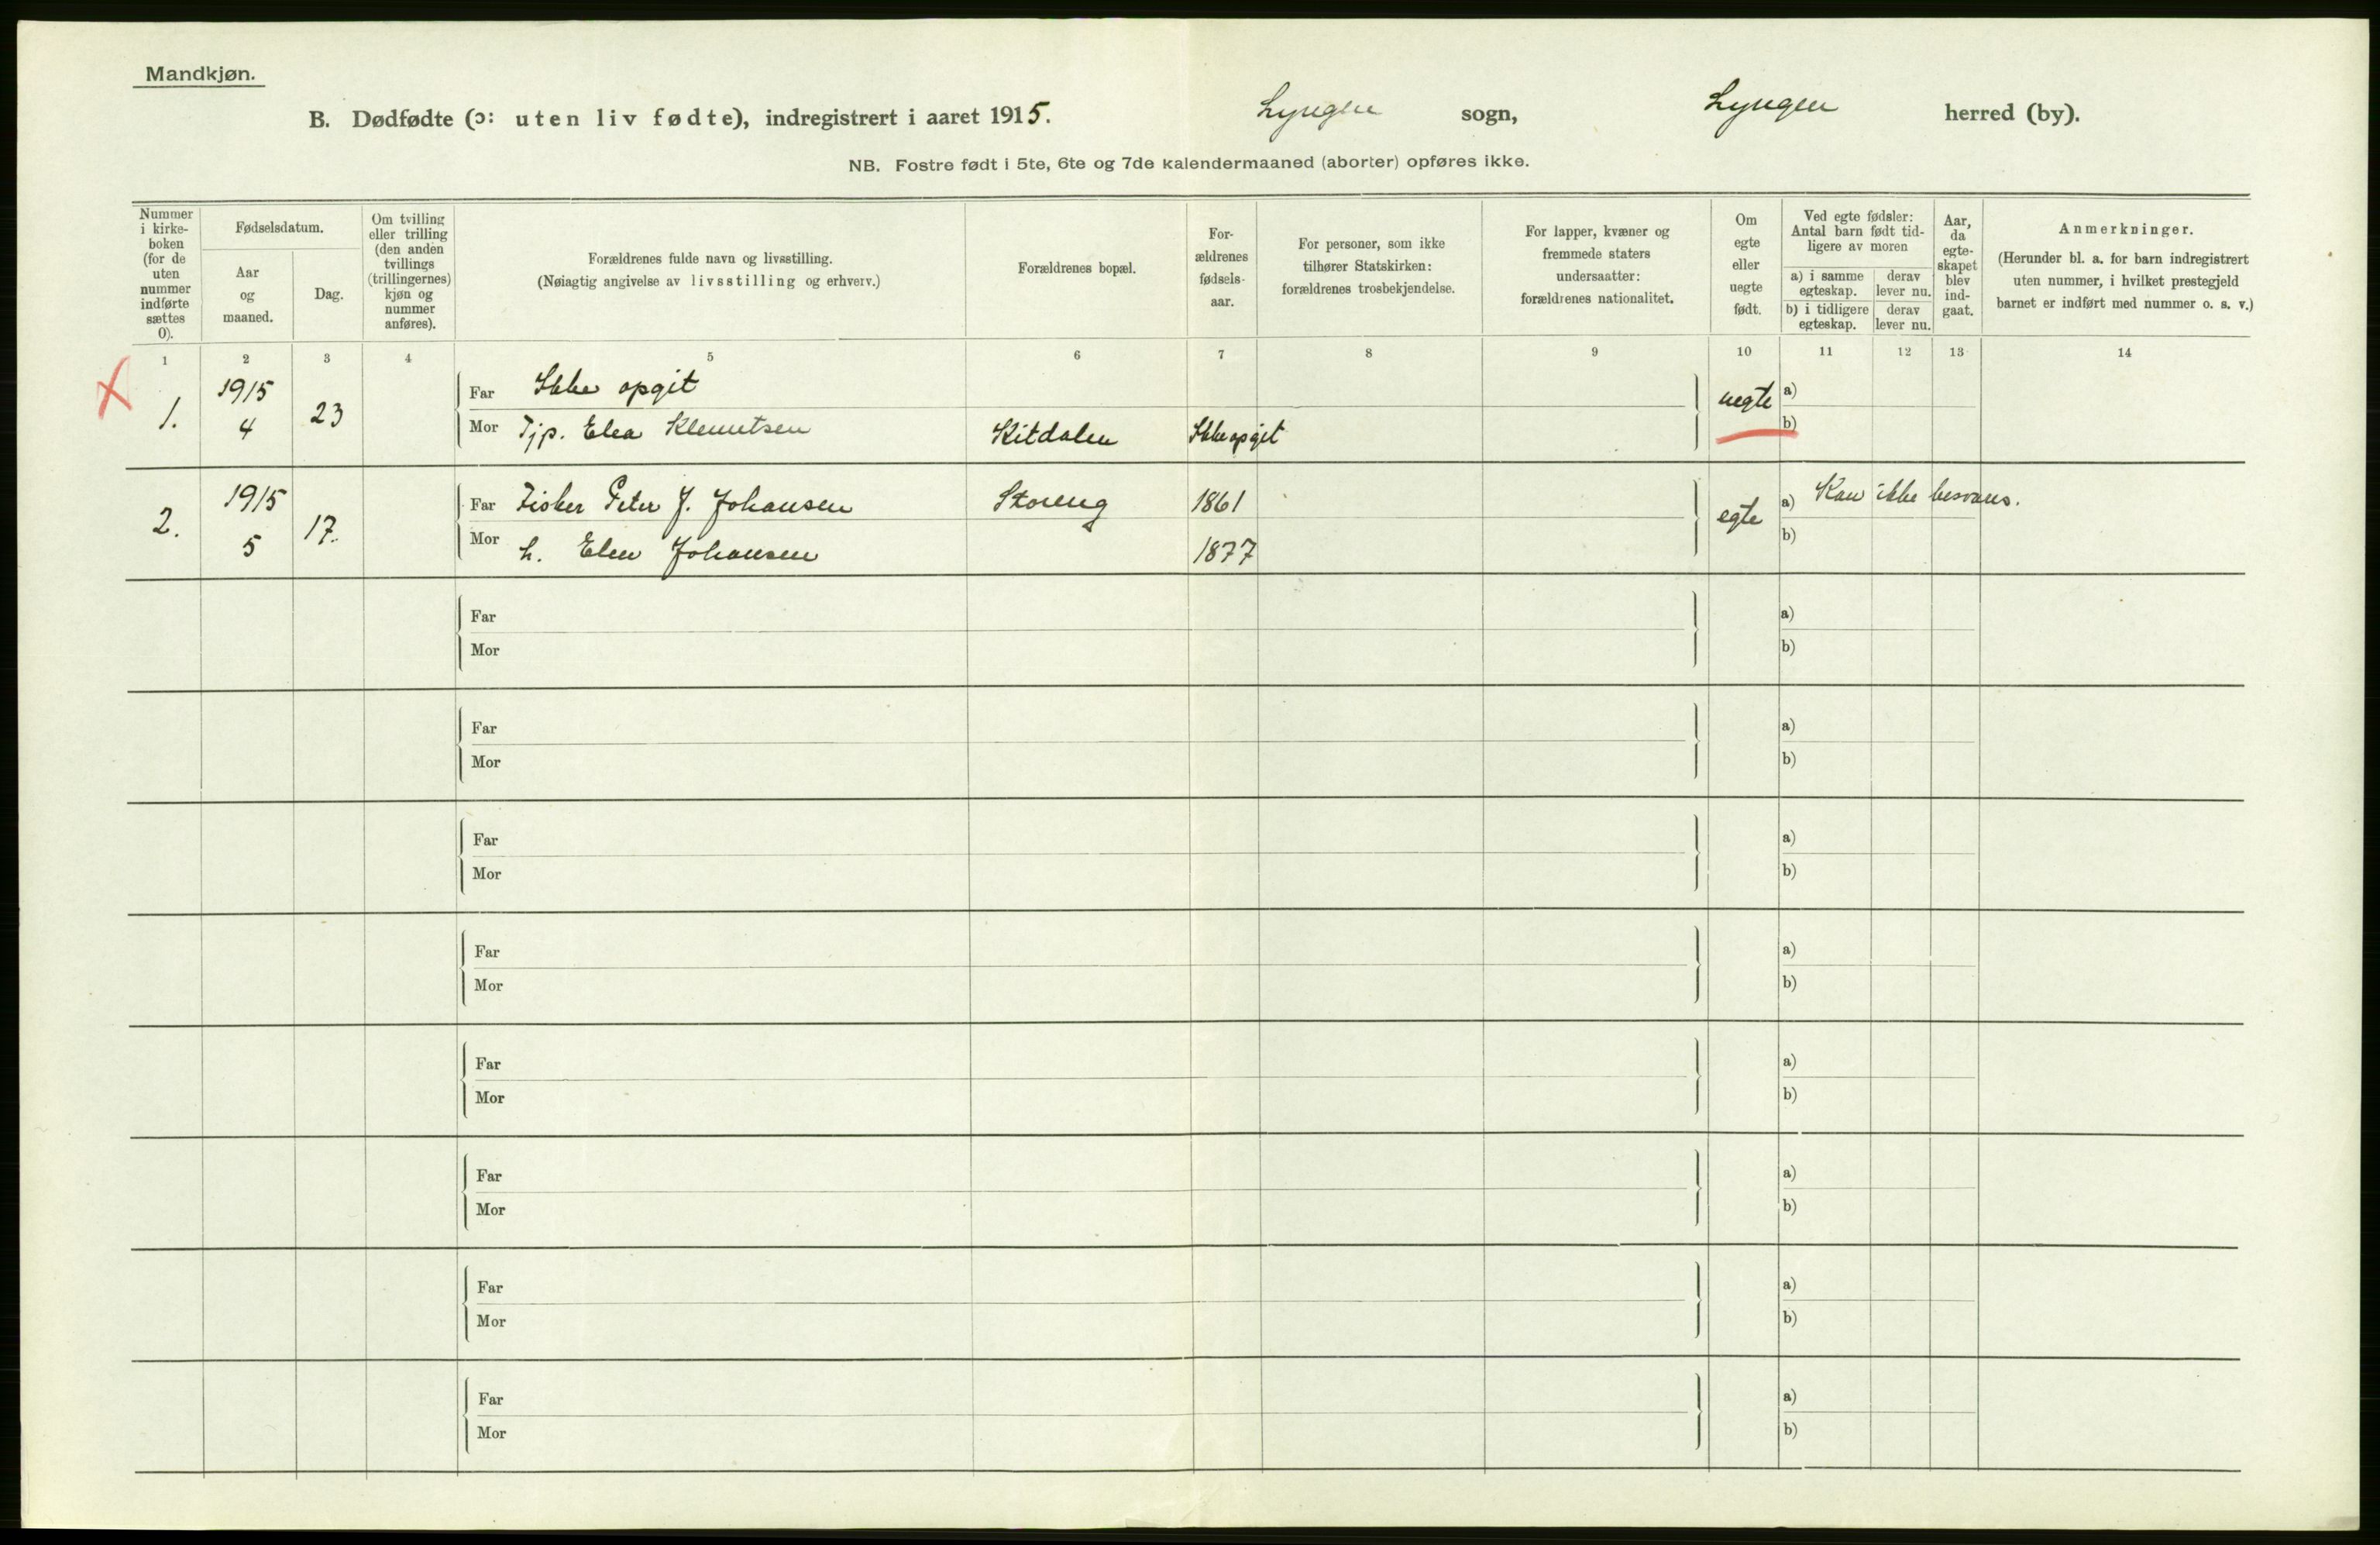 Mandkjøn.
B. Dødfødte (ɔ: uten liv fødte), indregistrert i aaret 1915. Lyngen sogn, Lyngen herred (by).
NB. Fostre født i 5te, 6te og 7de kalendermaaned (aborter) opføres ikke.
Nummer i kirke-boken (for de uten nummer indførte sættes 0).
Fødselsdatum.
Aar og maaned.
Dag.
Om tvilling eller trilling (den anden tvillings (trillingernes) kjøn og nummer anføres).
Forældrenes fulde navn og livsstilling.
(Nøiagtig angivelse av livsstilling og erhverv.)
Forældrenes bopæl.
For-ældrenes fødsels-aar.
For personer, som ikke tilhører Statskirken: forældrenes trosbekjendelse.
For lapper, kvæner og fremmede staters undersaatter: forældrenes nationalitet.
Om egte eller uegte født.
Ved egte fødsler: Antal barn født tid-ligere av moren
a) i samme egteskap.
derav lever nu.
b) i tidligere egteskap.
derav lever nu.
Aar, da egte-skapet blev ind-gaat.
Anmerkninger.
(Herunder bl. a. for barn indregistrert uten nummer, i hvilket prestegjeld barnet er indført med nummer o. s. v.)
1 2 3 4 5 6 7 8 9 10 11 12 13 14
1. 1915 4 23 Far Ikke opgit uegte a)
Mor Tjp. Elea Klemetsen Kitdalen Ikke opgit b)
2. 1915 5 17. Far Fisker Peter J. Johansen Storeng 1861 egte a) Kan ikke besvares.
Mor h. Elen Johansen 1877 b)
Far a)
Mor b)
Far a)
Mor b)
Far a)
Mor b)
Far a)
Mor b)
Far a)
Mor b)
Far a)
Mor b)
Far a)
Mor b)
Far a)
Mor b)